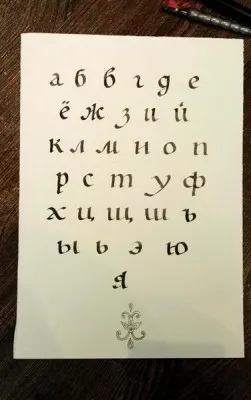 а б в г д е
ё ж з и й
к л м н о п
р с т у ф
х ц щ ш ъ
ы ь э ю
я